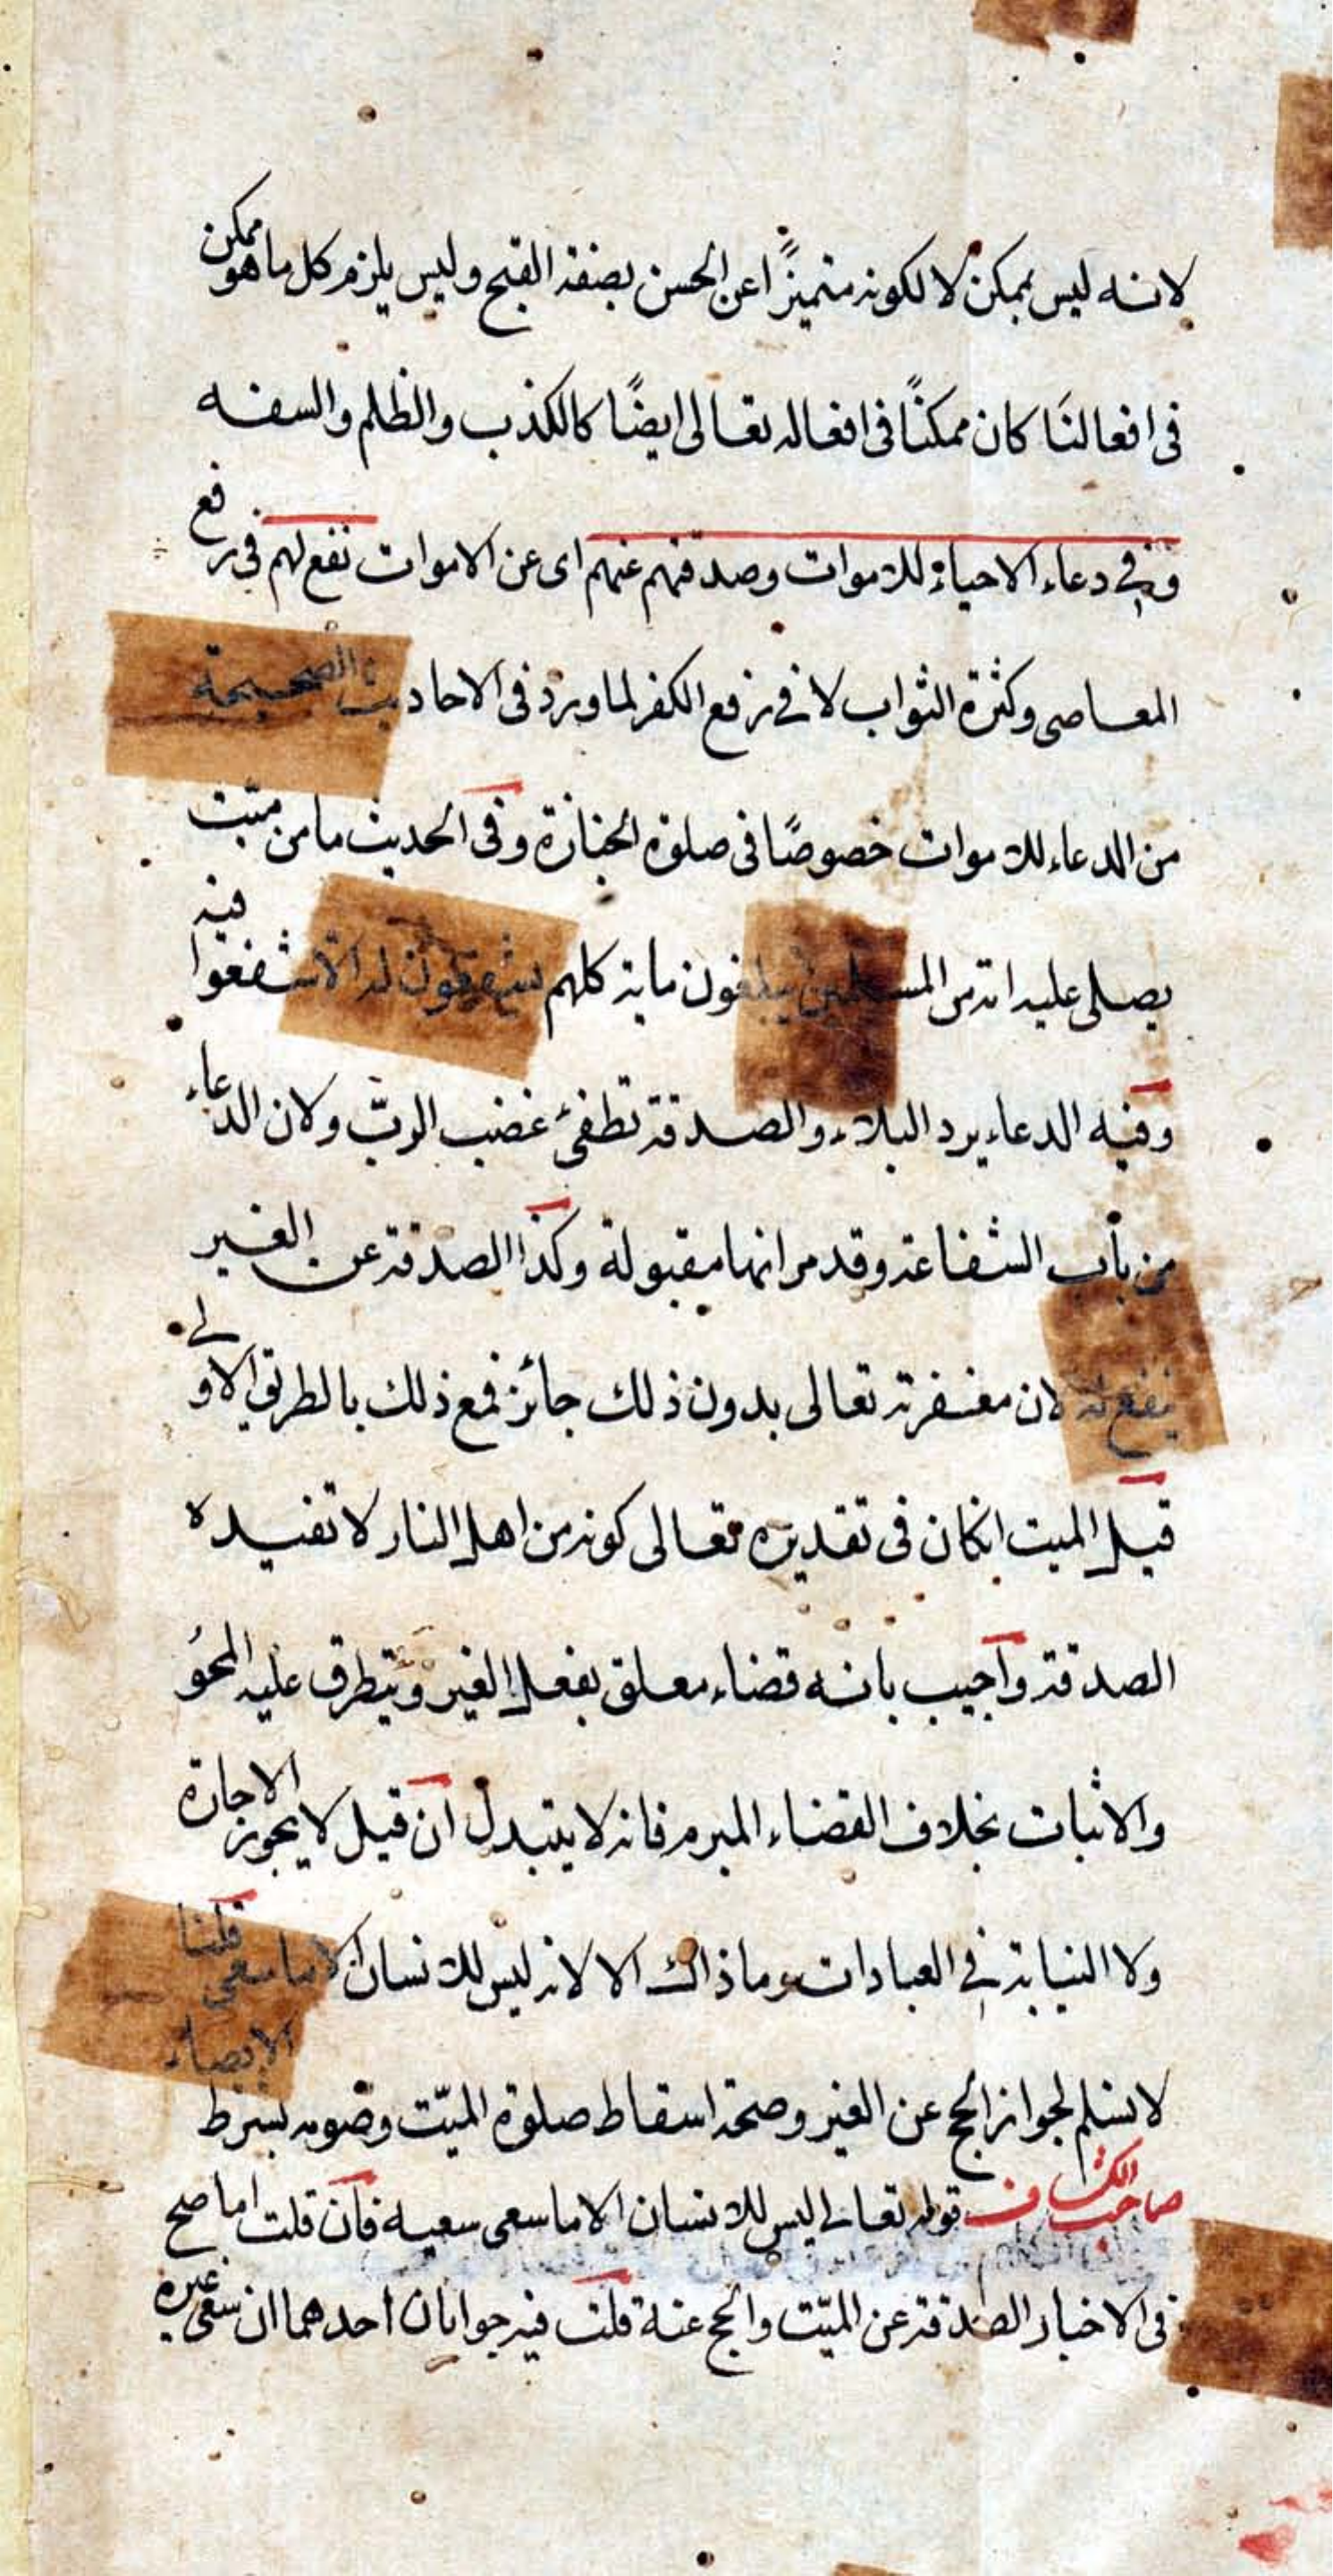 لانه ليس بممكن لا لكونه متميزًا عن الحسن بصفة القبح وليس يلزم كل ما هو ممكن
فى افعالنا كان ممكنًا فى افعاله تعالى ايضًا كالكذب والظلم والسفه
وفى دعاء الاحياء للاموات وصدقتهم عنهم اى عن الاموات نفع لهم فى رفع
المعاصى وكثرة الثواب لا فى رفع الكفر لما ورد فى الاحاديث الصحيحة
من الدعاء للاموات خصوصًا فى صلوة الجنازة وفى الحديث ما من ميّت
يصلى عليه امة من المسلمين يبلغون ماية كلهم يشفعون له الا شفعوا فيه
وفيه الدعاء يرد البلاء والصدقة تطفئ غضب الربّ ولان الدعاء
من باب الشفاعة وقد مر انها مقبولة وكذا الصدقة عن الغير
ينفع له لان مغفرته تعالى بدون ذلك جائز فمع ذلك بالطريق الاولى
قيل الميت انكان فى تقديره تعالى كونه من اهل النار لا تفيده
الصدقة واجيب بانه قضاء معلق بفعل الغير ويتطرق عليه المحو
والاثبات بخلاف القضاء المبرم فانه لا يتبدل ان قيل لا يجوز الاجارة
ولا النيابة فى العبادات وما ذاك الا لانه ليس للانسان الا ما سعى قلنا
لا نسلم لجواز الحج عن الغير وصحة اسقاط صلوة الميّت وصومه بشرط الايصاء
صاحب الكشاف قوله تعالى ليس للانسان الا ما سعى سعيه فان قلت اما صح
فى الاخبار الصدقة عن الميّت والحج عنه قلت فيه جوابان احدهما ان سعى غيره